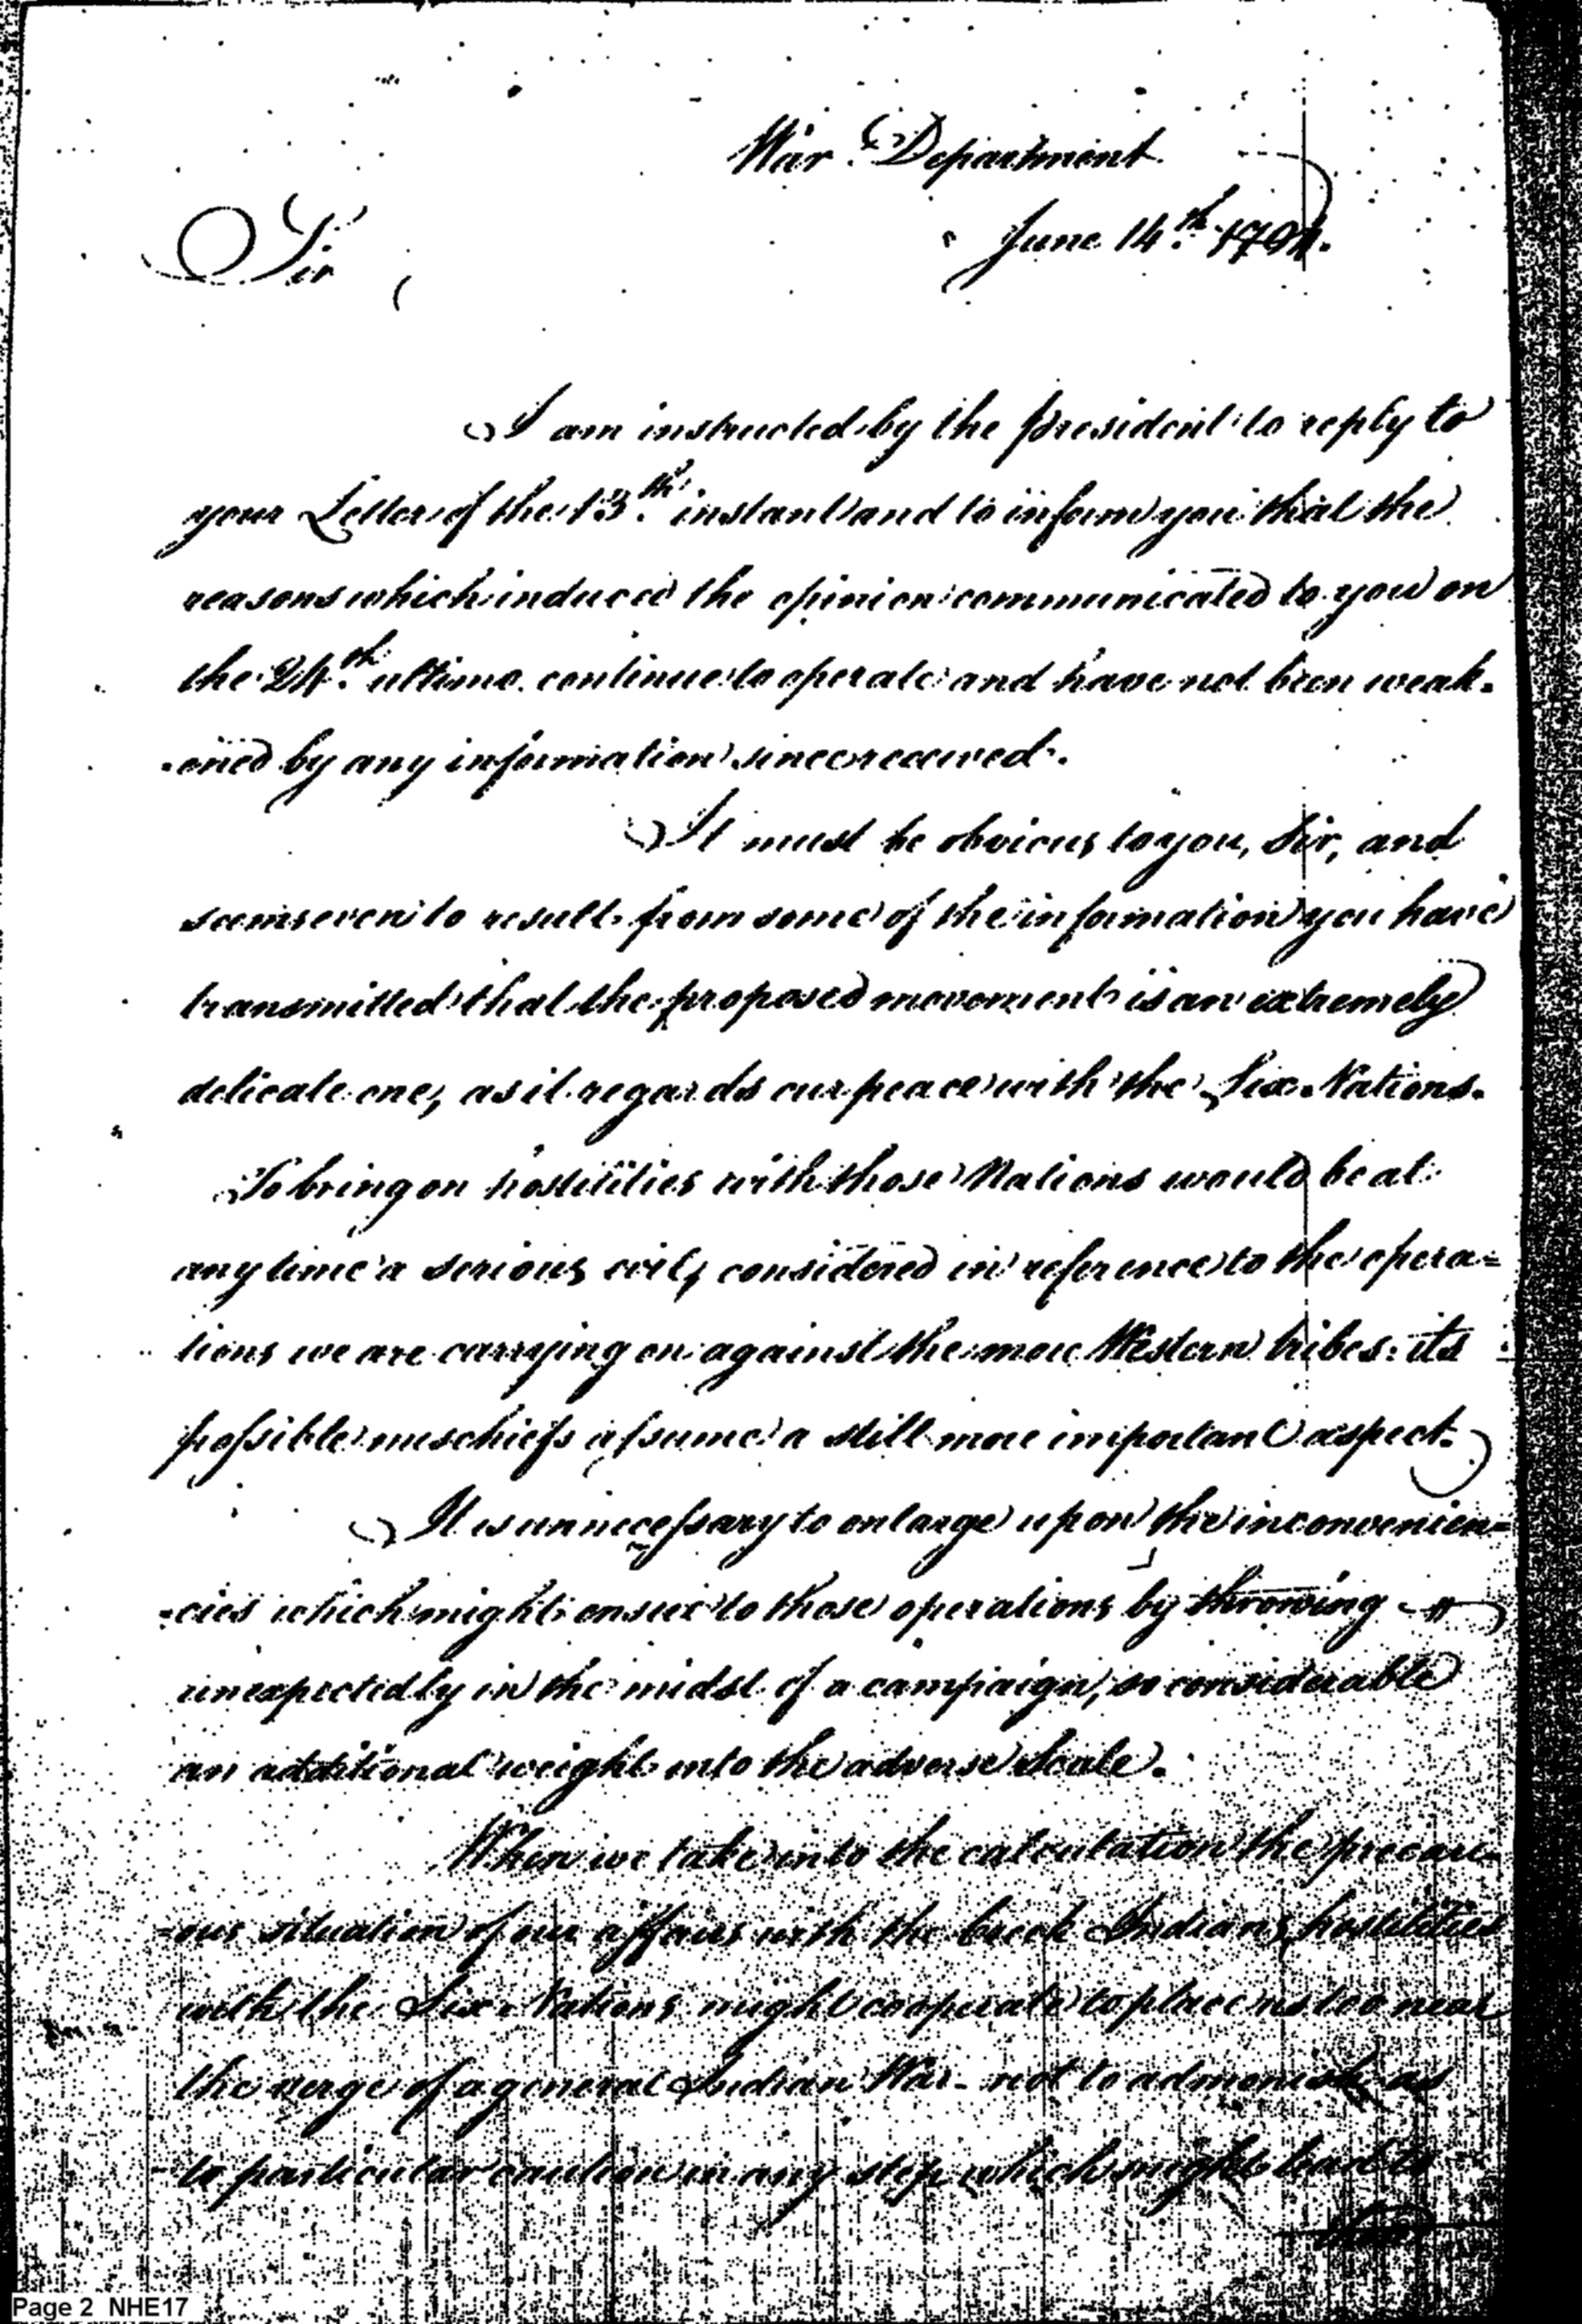 War Department
June 14th. 1794.
Sir
I am instructed by the President to reply to
your Letter of the 13th. instant and to inform you that the
reasons which induced the opinion communicated to you on
the 24th. ultimo. continue to operate and have not been weak-
-ened by any information since received.
It must be obvious to you, Sir, and
seems even to result from some of the information you have
transmitted that the proposed movement is an extremely
delicate one, as it regards our peace with the Six Nations.
To bring on hostilities with those Nations would be at
any time a serious evil, considered in reference to the opera=
tions we are carrying on against the more Western tribes: its
possible mischiefs assume a still more important aspect.
It is unnecessary to enlarge upon the inconvenien=
-cies which might ensue to those operations by throwing
unexpectedly in the midst of a campaign, so considerable
an additional weight into the adverse Scale.
When we take into the calculation the precari-
-ous situation of our affairs with the Creek Indians, hostilities
with the Six Nations might cooperate to place us too near
the verge of a general Indian War - not to admonish us
to particular caution in any step which might lead to
Page 2 NHE17